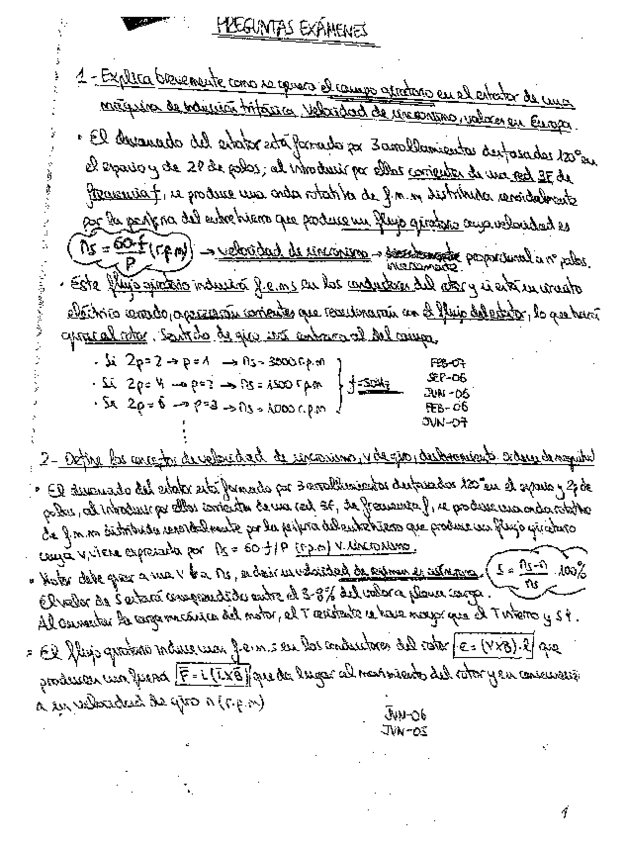 PREGUNTAS EXÁMENES
1- Explica brevemente como se genera el campo giratorio en el estator de una
máquina de inducción trifásica. Velocidad de sincronismo, valores en Europa.
• El devanado del estator está formado por 3 arrollamientos desfasados 120° en
el espacio y de 2P de polos; al introducir por ellos corrientes de una red 3F de
frecuencia f, se produce una onda rotativa de f.m.m distribuida senoidalmente
por la periferia del entrehierro que produce un flujo giratorio cuya velocidad es
ns = 60·f/P (r.p.m) → velocidad de sincronismo → inversamente proporcional a nº polos.
• Este flujo giratorio inducirá f.e.m.s en los conductores del rotor y si está en circuito
eléctrico cerrado, aparecerán corrientes que reaccionarán con el flujo del estator, lo que hará
girar al rotor. Sentido de giro será al del campo
· Si 2p=2 → p=1 → ns=3000 r.p.m
· Si 2p=4 → p=2 → ns=1500 r.p.m
· Si 2p=6 → p=3 → ns=1000 r.p.m
f=50Hz
FEB-07
SEP-06
JUN-06
FEB-06
JUN-07
2- Define los conceptos de velocidad de sincronismo, v de giro, deslizamiento. Ordenes de magnitud
• El devanado del estator está formado por 3 arrollamientos desfasados 120° en el espacio y 2p de
polos, al introducir por ellos corrientes de una red 3F, de frecuencia f, se produce una onda rotativa
de f.m.m distribuida senoidalmente por la periferia del entrehierro que produce un flujo giratorio
cuya v, viene expresada por ns = 60·f/P (r.p.m) v. sincronismo.
• Motor debe girar a una V a ns, es decir su velocidad de régimen es
S = ns-n/ns · 100%
El valor de S estará comprendido entre el 3-8% del valor a plena carga.
Al aumentar la carga mecánica del motor, el T resistente se hace mayor que el T interno y S↑.
= El flujo giratorio induce unas f.e.m.s en los conductores del rotor e = (V×B)·l que
producen una fuerza F = i(L×B) que da lugar al movimiento del rotor y en consecuencia
a su velocidad de giro n (r.p.m)
JUN-06
JUN-05
1